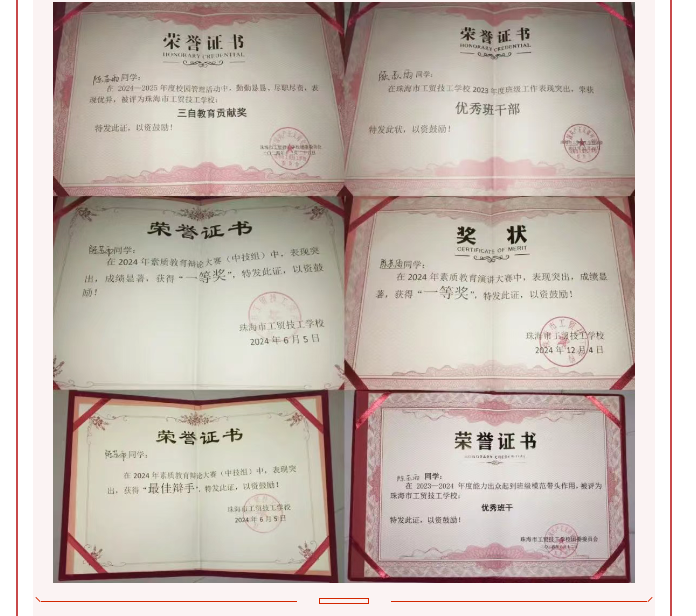 荣誉证书
HONORARY CREDENTIAL
同学:
在 2024—2025 年度校园管理活动中，勤勤恳恳、尽职尽责，表
现优异，被评为珠海市工贸技工学校:
三自教育贡献奖
特发此证，以资鼓励！
荣誉证书
HONORARY CREDENTIAL
同学:
在珠海市工贸技工学校 2023 年度班级工作表现突出，荣获
优秀班干部
特发此状，以资鼓励！
荣誉证书
同学:
在 2024 年素质教育辩论大赛（中技组）中，表现突
出，成绩显著，获得“一等奖”，特发此证，以资鼓
励！
珠海市工贸技工学校
2024 年 6 月 5 日
奖 状
CERTIFICATE OF MERIT
同学:
在 2024 年素质教育演讲大赛中，表现突出，成绩显
著，获得“一等奖”，特发此证，以资鼓励！
珠海市工贸技工学校
2024 年 12 月 4 日
荣誉证书
同学:
在 2024 年素质教育辩论大赛（中技组）中，表现突
出，获得“最佳辩手”，特发此证，以资鼓励！
珠海市工贸技工学校
2024 年 6 月 5 日
荣誉证书
同学:
在 2023—2024 年度能力出众起到班级模范带头作用，被评为
珠海市工贸技工学校:
优秀班干
特发此证，以资鼓励！